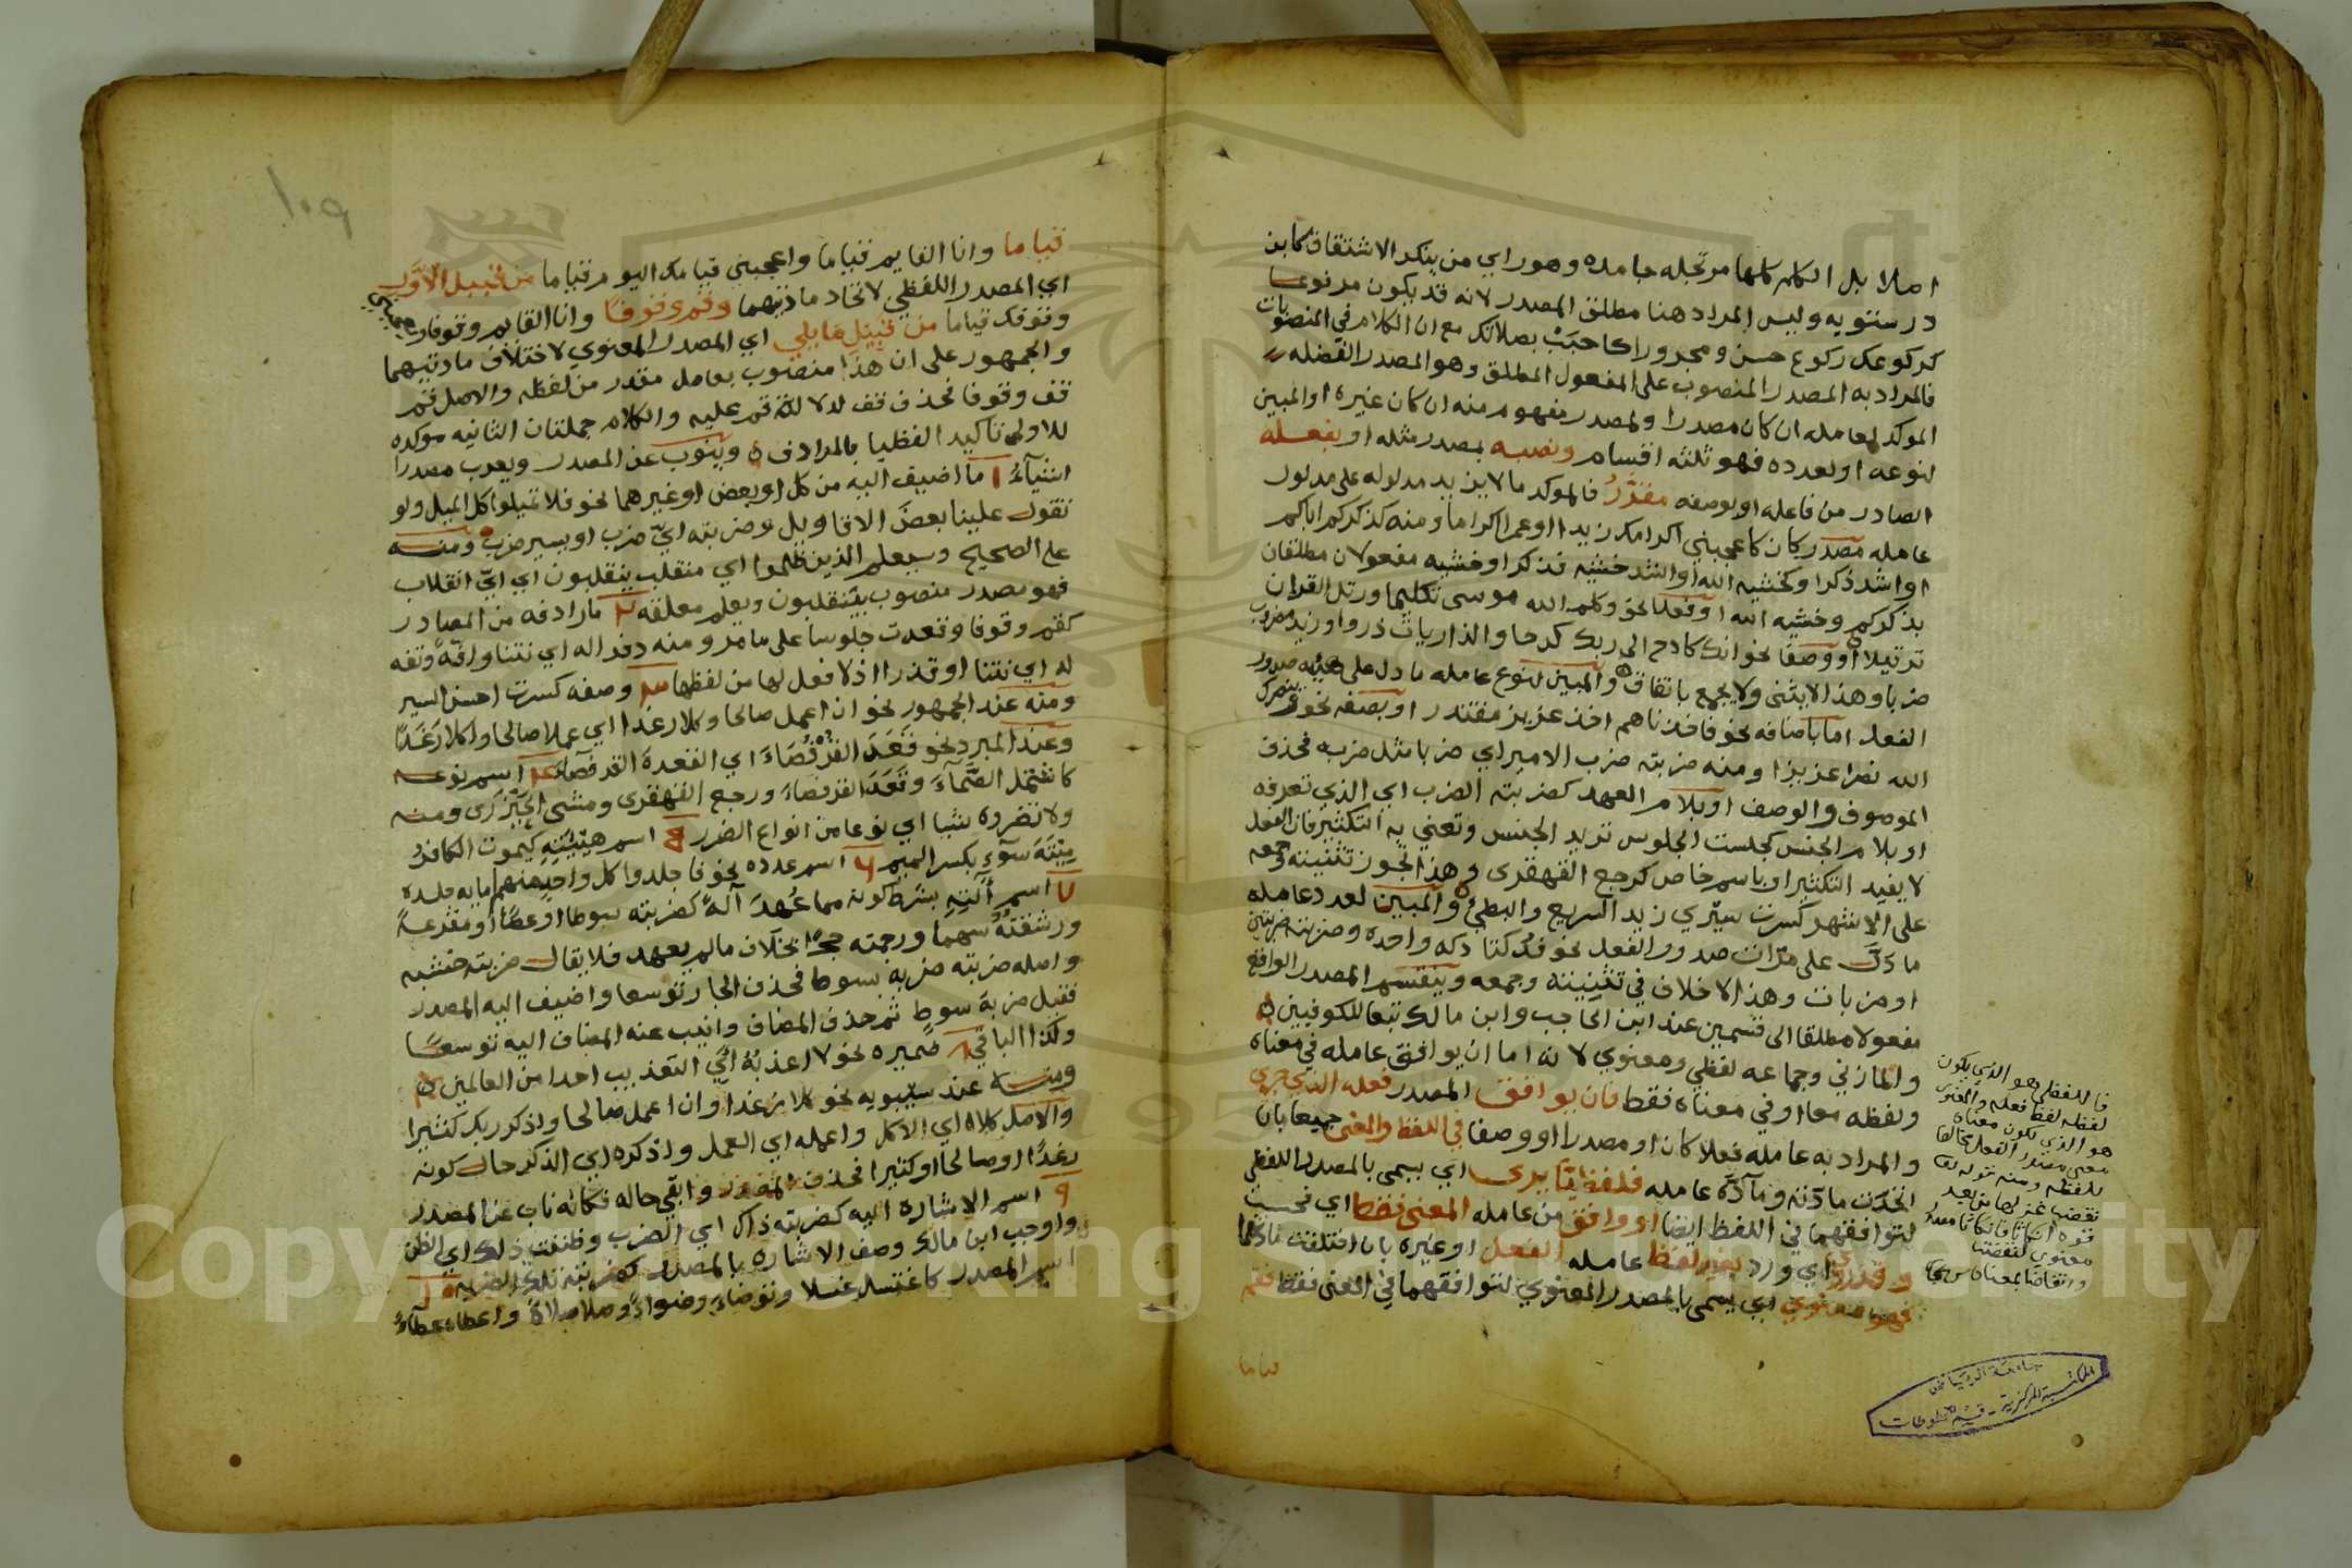 اصلا بل الكلم كلها مرتجله جامده وهو راي من ينكر الاشتقاق كابن
درستويه وليس المراد هنا مطلق المصدر لانه قد يكون مرفوعا
كركوعك ركوع حسن ومجرورا كاحببت بصلاتك مع ان الكلام في المنصوبات
فالمراد به المصدر المنصوب على المفعول المطلق وهو المصدر الفضله
الموكد لعامله ان كان مصدرا ولمصدر مفهوم منه ان كان غيره او المبين
لنوعه او لعدده فهو ثلثه اقسام ونصبه بمصدر مثله او بفعله
الصادر من فاعله او بوصفه مقدر فالموكد ما لا يزيد مدلوله على مدلول
عامله مصدر كان كاعجبني اكرامك زيدا او عمرا اكراما ومنه كذكركم اباكم
او اشد ذكرا وكخشيه الله او اشد خشيه فذكرا وخشيه مفعولان مطلقان
بذكركم وخشيه الله او فعلا نحو وكلم الله موسى تكليما ورتل القران
ترتيلا او وصفا نحو انك كادح الى ربك كدحا والذاريات ذروا وزيد مضروب
ضربا وهذا لا يثنى ولا يجمع باتفاق والمبين لنوع عامله ما دل على هيئه صدور
الفعل اما باضافه نحو فاخذناهم اخذ عزيز مقتدر او بصفه نحو وينصرك
الله نصرا عزيزا ومنه ضربته ضرب الامير اي ضربا مثل ضربه فحذف
الموصوف والوصف او بلام العهد كضربته الضرب اي الذي تعرفه
او بلام الجنس كجلست الجلوس تريد الجنس وتعني به التكثير فان الفعل
لا يفيد التكثير او باسم خاص كرجع القهقرى وهذا يجوز تثنيته وجمعه
على الاشهر كسرت سيري زيد السريع والبطئ والمبين لعدد عامله
ما دل على مرات صدور الفعل نحو فدكتا دكه واحده وضربته ضربتين
او ضربات وهذا لا خلاف في تثنيته وجمعه وينقسم المصدر الواقع
مفعولا مطلقا الى قسمين عند ابن الحاجب وابن مالك تبعا للكوفيين
والمازني وجماعه لفظي ومعنوي لانه اما ان يوافق عامله في معناه
ولفظه معا او في معناه فقط فان يوافق المصدر فعله الذي جرى
والمراد به عامله فعلا كان او مصدرا او وصفا في اللفظ والمعنى جميعا بان
اتحدت مادته ومادة عامله فلفظيا يرى اي يسمى بالمصدر اللفظي
لتوافقهما في اللفظ ايضا او وافق من عامله المعنى فقط اي فحسب
وقد روي اي ورد بغير لفظ عامله الفعل او غيره بان اختلفت مادتهما
فهو معنوي اي يسمى بالمصدر المعنوي لتوافقهما في المعنى فقط فقم
قياما
فاللفظي هو الذي يكون
لفظه لفظ فعله والمعنوي
هو الذي يكون معناه
معنى مصدر الفعل مخالفا
للفظه ومنه قوله تعا
نقضت غزلها من بعد
قوه انكاثا فانكاثا مصدر
معنوي لنقضت
جامعة الرياض
المكتبة المركزية - قسم المخطوطات
١٠٩
قياما وانا القايم قياما واعجبني قيامك اليوم قياما من قبيل الاول
اي المصدر اللفظي لاتحاد مادتيهما وقم وقوفا وانا القايم وقوفا
ووقوفك قياما من قبيل ما يلي اي المصدر المعنوي لاختلاف مادتيهما
والجمهور على ان هذا منصوب بعامل مقدر من لفظه والاصل قم
قف وقوفا فحذف قف لدلالة قم عليه والكلام جملتان الثانيه موكده
للاولى تاكيدا لفظيا بالمرادف وينوب عن المصدر ويعرب مصدرا
اشيآء ١ ما اضيف اليه من كل او بعض او غيرهما نحو فلا تميلوا كل الميل ولو
تقول علينا بعض الاقاويل وضربته اي ضرب او يسير ضرب ومنه
على الصحيح وسيعلم الذين ظلموا اي منقلب ينقلبون اي اي انقلاب
فهو مصدر منصوب بينقلبون ويعلم معلقه ٢ مارادفه من المصادر
كقم وقوفا وقعدت جلوسا على ما مر ومنه دفرا له اي نتنا وافة وتفه
له اي نتنا او قذرا اذ لا فعل لها من لفظها ٣ وصفه كسرت احسن السير
ومنه عند الجمهور نحو ان اعمل صالحا وكلا رغدا اي عملا صالحا واكلا رغدا
وعند المبرد نحو قعد القرفصاء اي القعدة القرفصاء ٤ اسم نوعه
كاشتمل الصماء وقعد القرفصاء ورجع القهقرى ومشى الخيزرى ومنه
ولا تضروه شيا اي نوعا من انواع الضرر ٥ اسم هيئته كيموت الكافر
ميتة سوء بكسر الميم ٦ اسم عدده نحو فاجلدوا كل واحد منهما مايه جلده
٧ اسم آلته بشرط كونه مما عهد آلة كضربته سوطا او عصا او مقرعة
ورشقته سهما ورجمته حجرا بخلاف مالم يعهد فلا يقال ضربته خشبه
واصله ضربته ضربه بسوط فحذف الجار توسعا واضيف اليه المصدر
فقيل ضربة سوط ثم حذف المضاف وانيب عنه المضاف اليه توسعا
وكذا الباقي ٨ ضميره نحو لا اعذبه اي التعذيب احدا من العالمين
ومنه عند سيبويه نحو كلا رغدا وان اعمل صالحا واذكر ربك كثيرا
والاصل كلاه اي الاكل واعمله اي العمل واذكره اي الذكر حال كونه
رغدا او صالحا او كثيرا فحذف المصدر وابقي حاله فكانه ناب عن المصدر
٩ اسم الاشاره اليه كضربته ذاك اي الضرب وظننت ذلك اي الظن
واوجب ابن مالك وصف الاشاره بالمصدر كضربته ذلك الضرب ١٠
اسم المصدر كاغتسل غسلا وتوضا وضوءا وصلا صلاة واعطا عطآء
Copyright © King Saud University